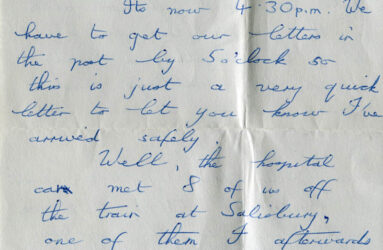 Its now 4.30p.m. We
have to get our letters in
the post by 5 o'clock so
this is just a very quick
letter to let you know I've
arrived safely.
Well, the hospital
car met 8 of us off
the train at Salisbury,
one of them I afterwards